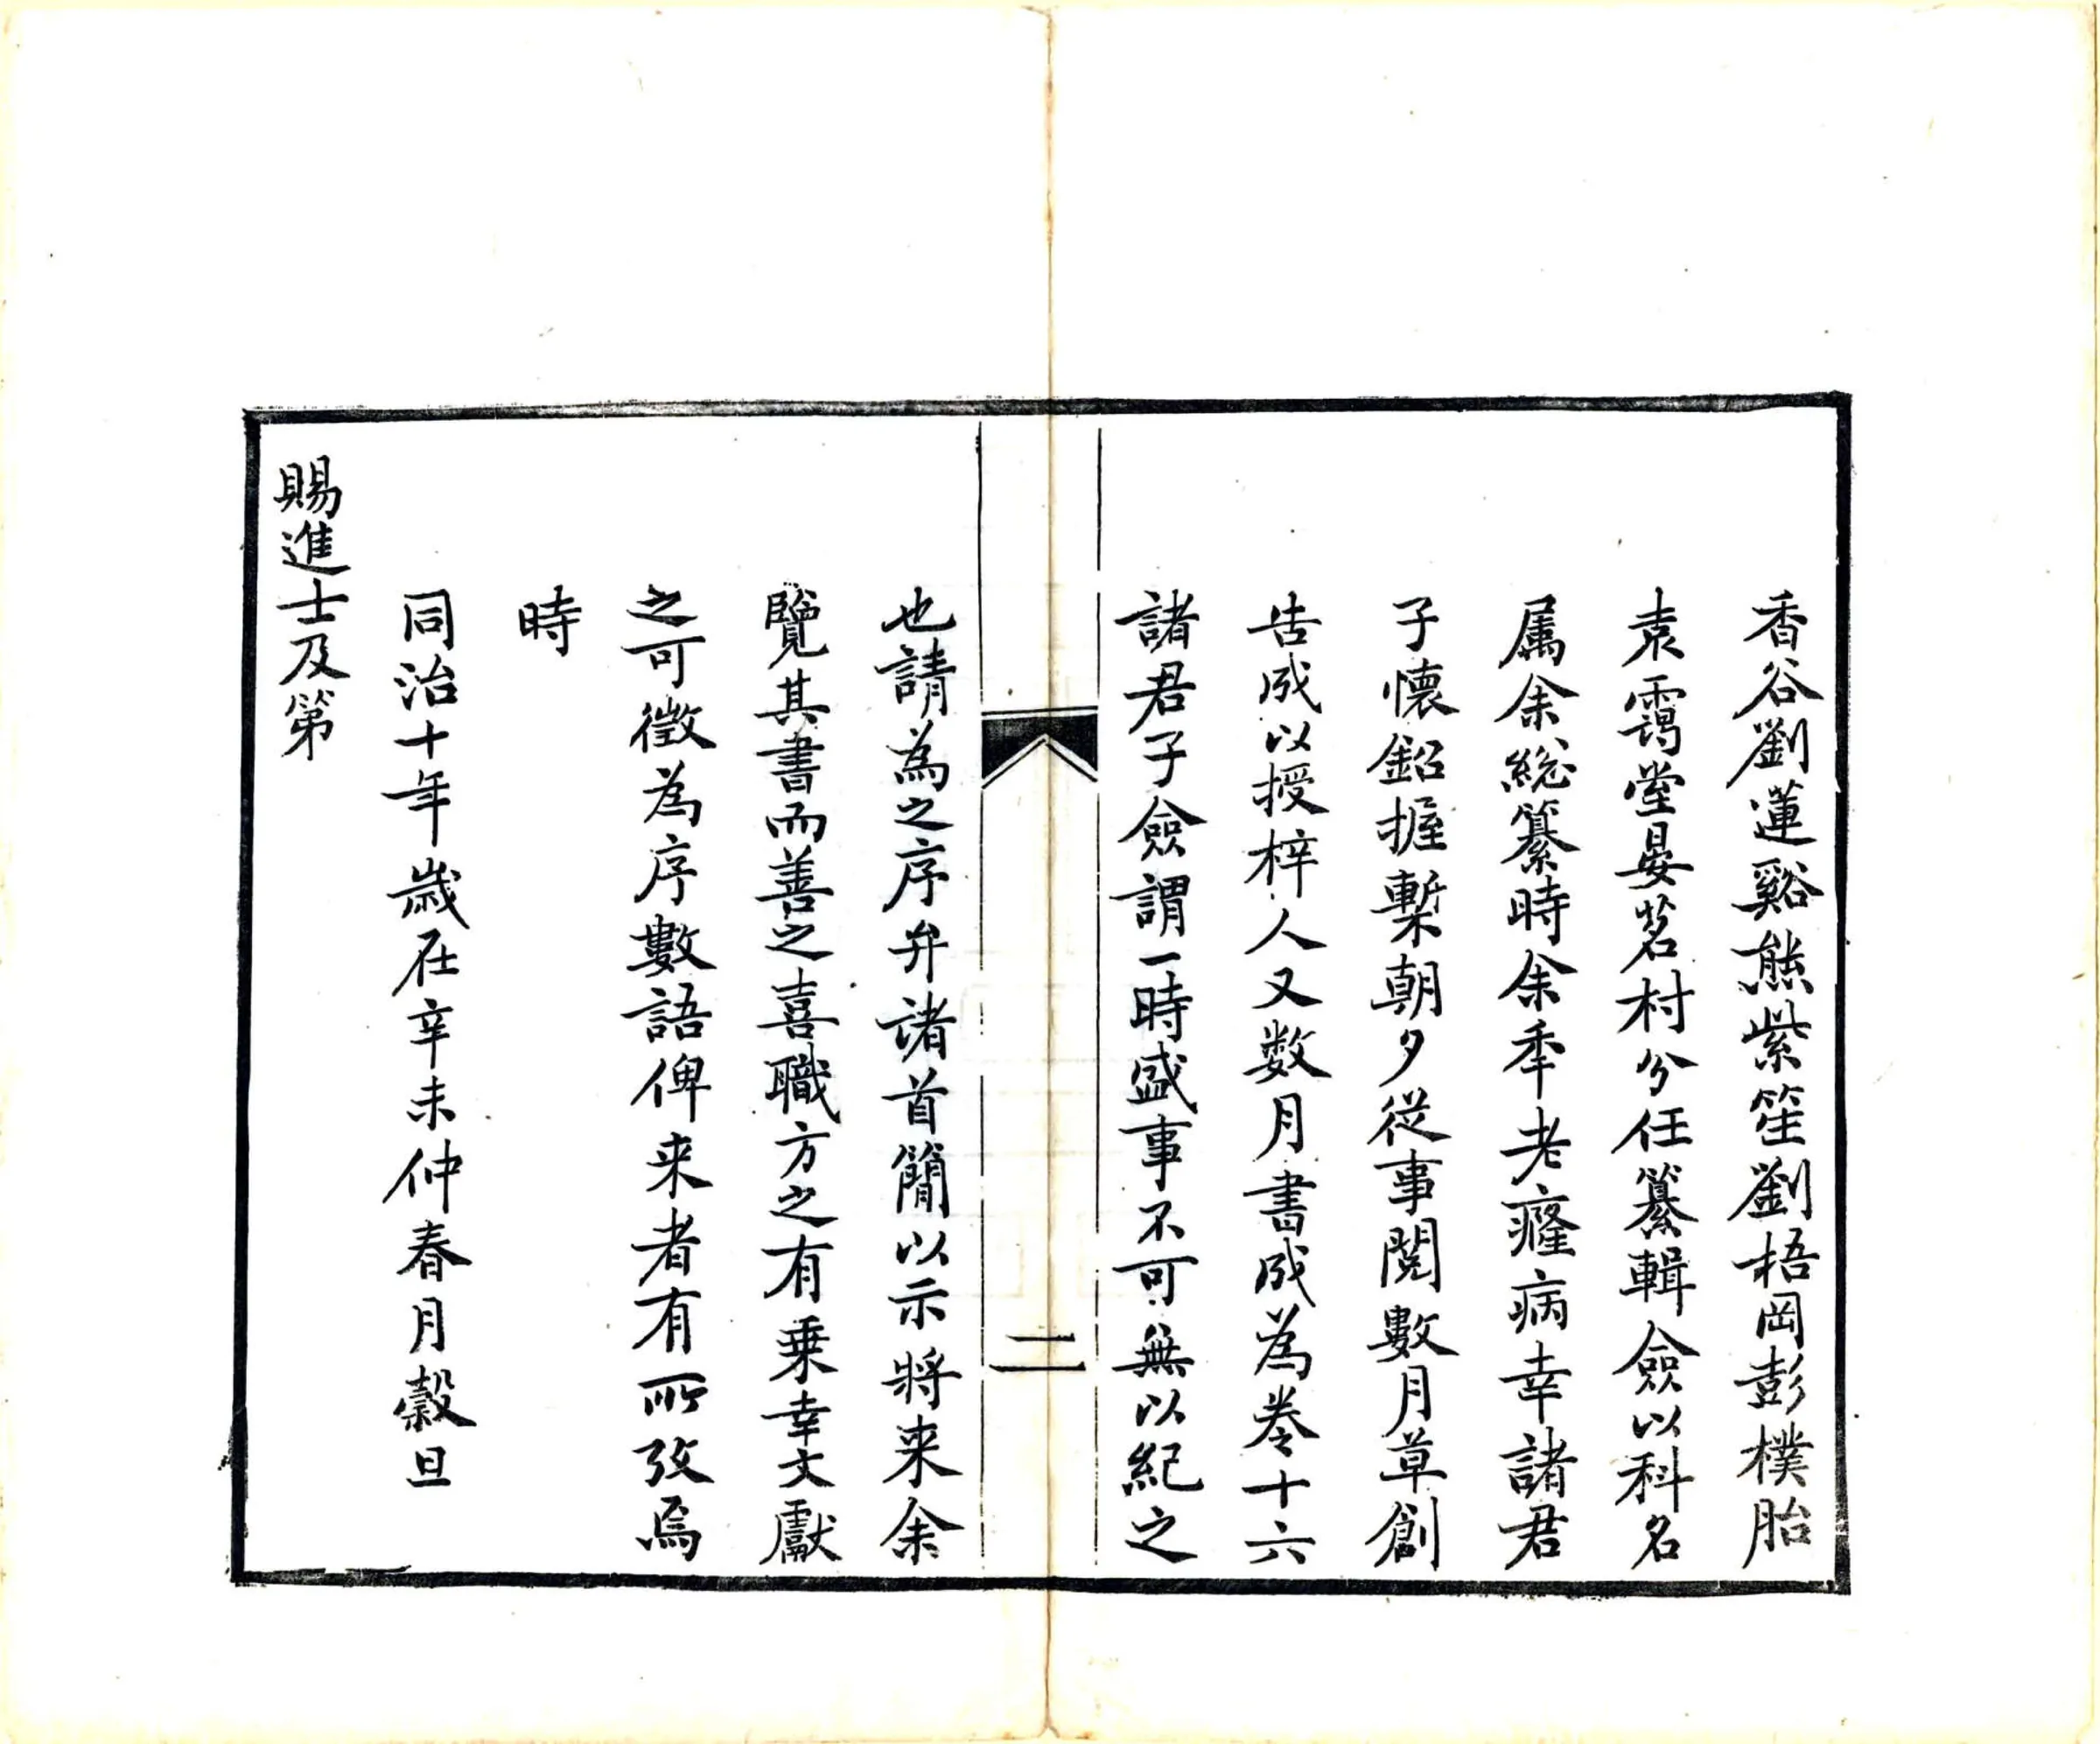 香谷劉蓮谿熊紫笙劉梧岡彭樸胎
袁靄堂晏茗村分任纂輯僉以科名
属余総纂時余秊老癃病幸諸君
子懷鉛握槧朝夕從事閱數月草創
告成以授梓人又数月書成為卷十六
諸君子僉謂一時盛事不可無以紀之
二
也請為之序弁諸首簡以示將来余
覽其書而善之喜職方之有乗幸文獻
之可徵為序數語俾来者有所攷焉
時
同治十年歲在辛未仲春月穀旦
賜進士及第